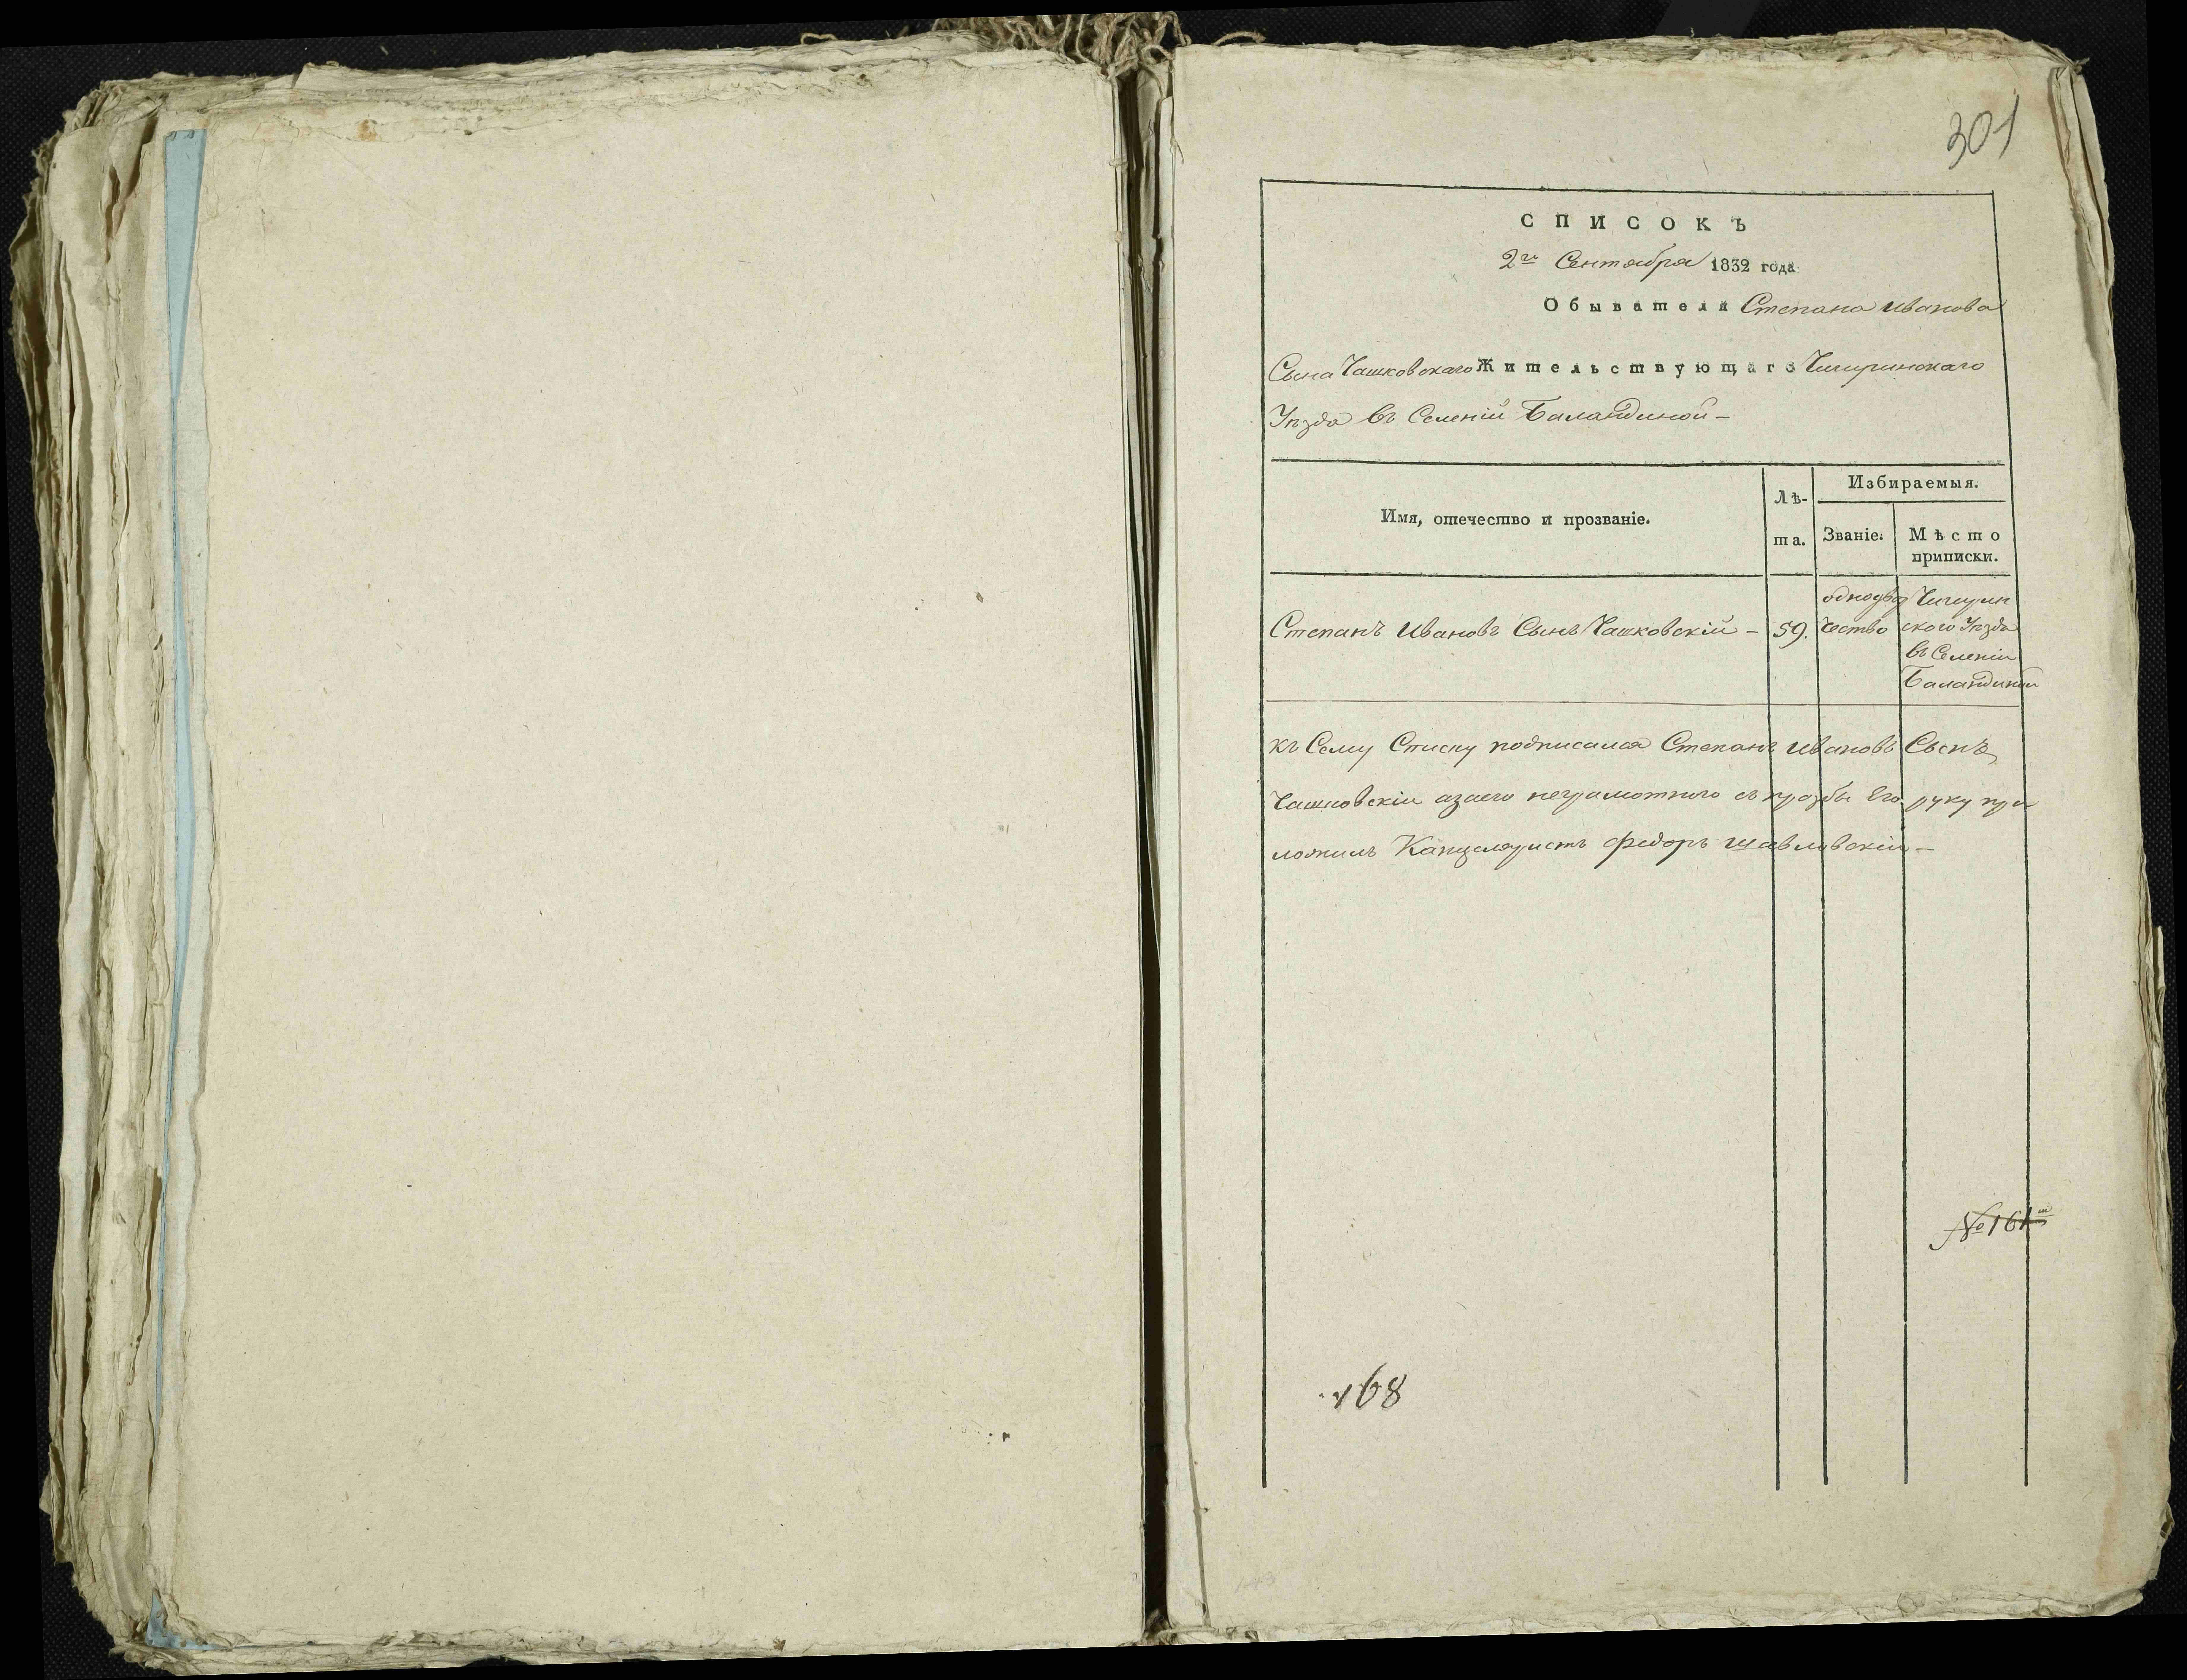 301
СПИСОКЪ
2го Сентября 1832 года
Обывателя Степана Иванова
Сына Чашковскаго Жительствующаго Чигиринскаго
Уѣзда въ Селеніи Баландиной —
Имя, отечество и прозваніе.
Лѣ-
та.
Избираемыя.
Званіе.
Мѣсто
приписки.
Степанъ Ивановъ Сынъ Чашковскій —
59.
однодвор
чество
Чигирин
ского Уѣзда
въ Селеніи
Баландиной
къ Сему Списку подписался Степанъ Ивановъ Сынъ
Чашковскіи азаего неграмотного съ прозбы Его руку при
ложилъ Канцеляристъ Федоръ
№ 161
168